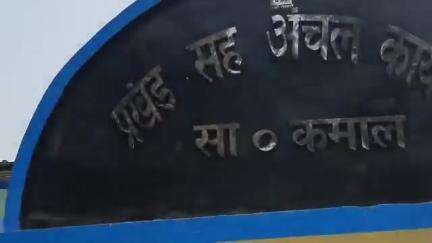 प्रखंड सह अंचल कार्य
सा० कमाल